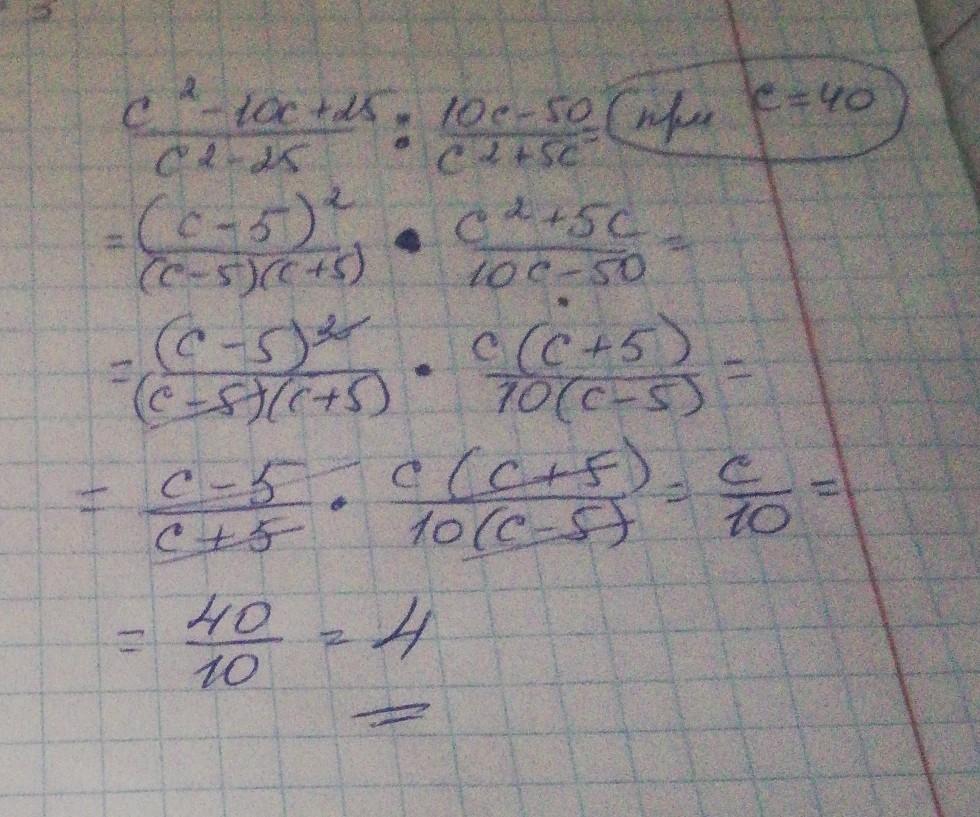 (c² - 10c + 25)/(c² - 25) : (10c - 50)/(c² + 5c) = при c = 40
= (c - 5)²/((c - 5)(c + 5)) • (c² + 5c)/(10c - 50) =
= (c - 5)²/((c - 5)(c + 5)) • c(c + 5)/(10(c - 5)) =
= (c - 5)/(c + 5) • c(c + 5)/(10(c - 5)) = c/10 =
= 40/10 = 4